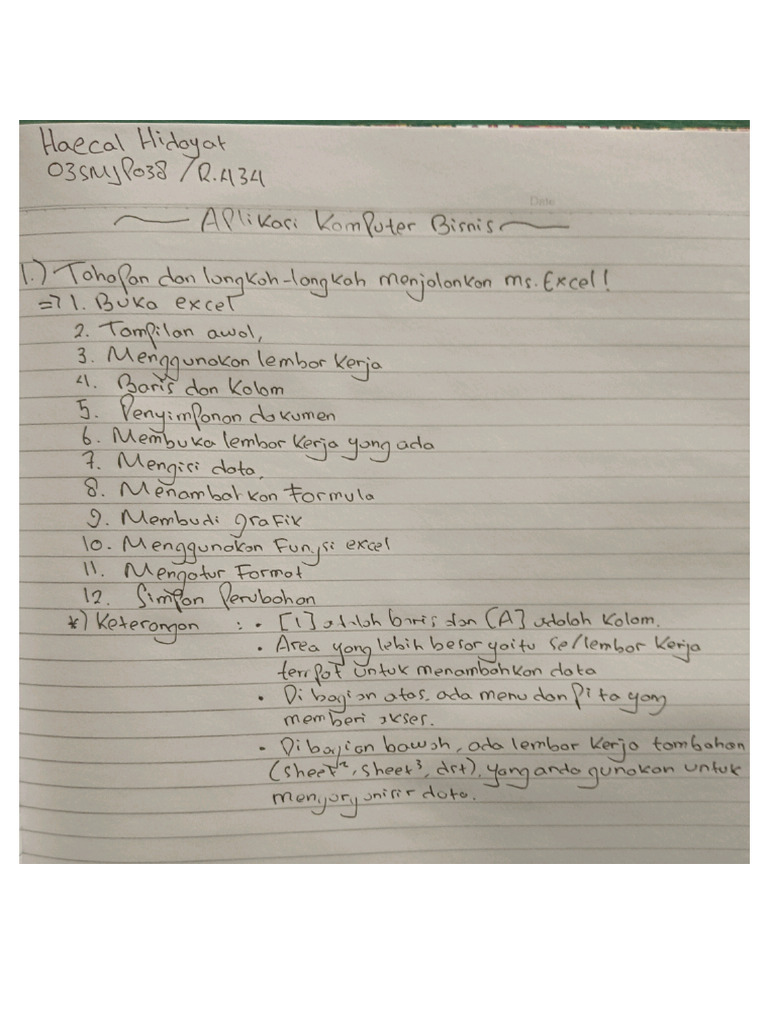 Haecal Hidayat
03SMJP038 / R.434
Date
Aplikasi Komputer Bisnis
1.) Tahapan dan langkah-langkah menjalankan ms. Excel!
=> 1. Buka excel
2. Tampilan awal,
3. Menggunakan lembar kerja
4. Baris dan kolom
5. Penyimpanan dokumen
6. Membuka lembar kerja yang ada
7. Mengisi data,
8. Menambahkan Formula
9. Membudi grafik
10. Menggunakan Fungsi excel
11. Mengatur Format
12. Simpan Perubahan
*) Keterangan : • [1] adalah baris dan [A] adalah kolom.
• Area yang lebih besar yaitu sel/lembar kerja
tempat untuk menambahkan data
• Di bagian atas, ada menu dan Pita yang
memberi akses.
• Dibagian bawah, ada lembar kerja tambahan
(sheet², sheet³, dst), yang anda gunakan untuk
mengorganisir data.